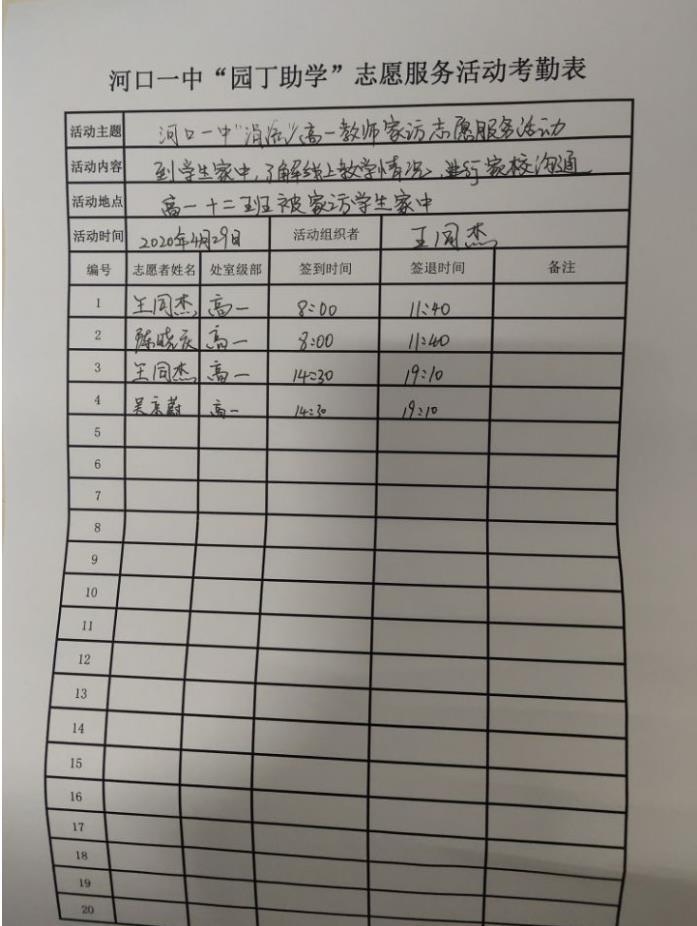 河口一中“园丁助学”志愿服务活动考勤表
活动主题 河口一中“涓流”高一教师家访志愿服务活动
活动内容 到学生家中,了解线上教学情况,进行家校沟通
活动地点 高一十二班被家访学生家中
活动时间 2020年4月29日 活动组织者 王同杰
编号 志愿者姓名 处室级部 签到时间 签退时间 备注
1 王同杰 高一 8:00 11:40
2 陈晓庆 高一 8:00 11:40
3 王同杰 高一 14:30 19:10
4 吴京蔚 高一 14:30 19:10
5
6
7
8
9
10
11
12
13
14
15
16
17
18
19
20